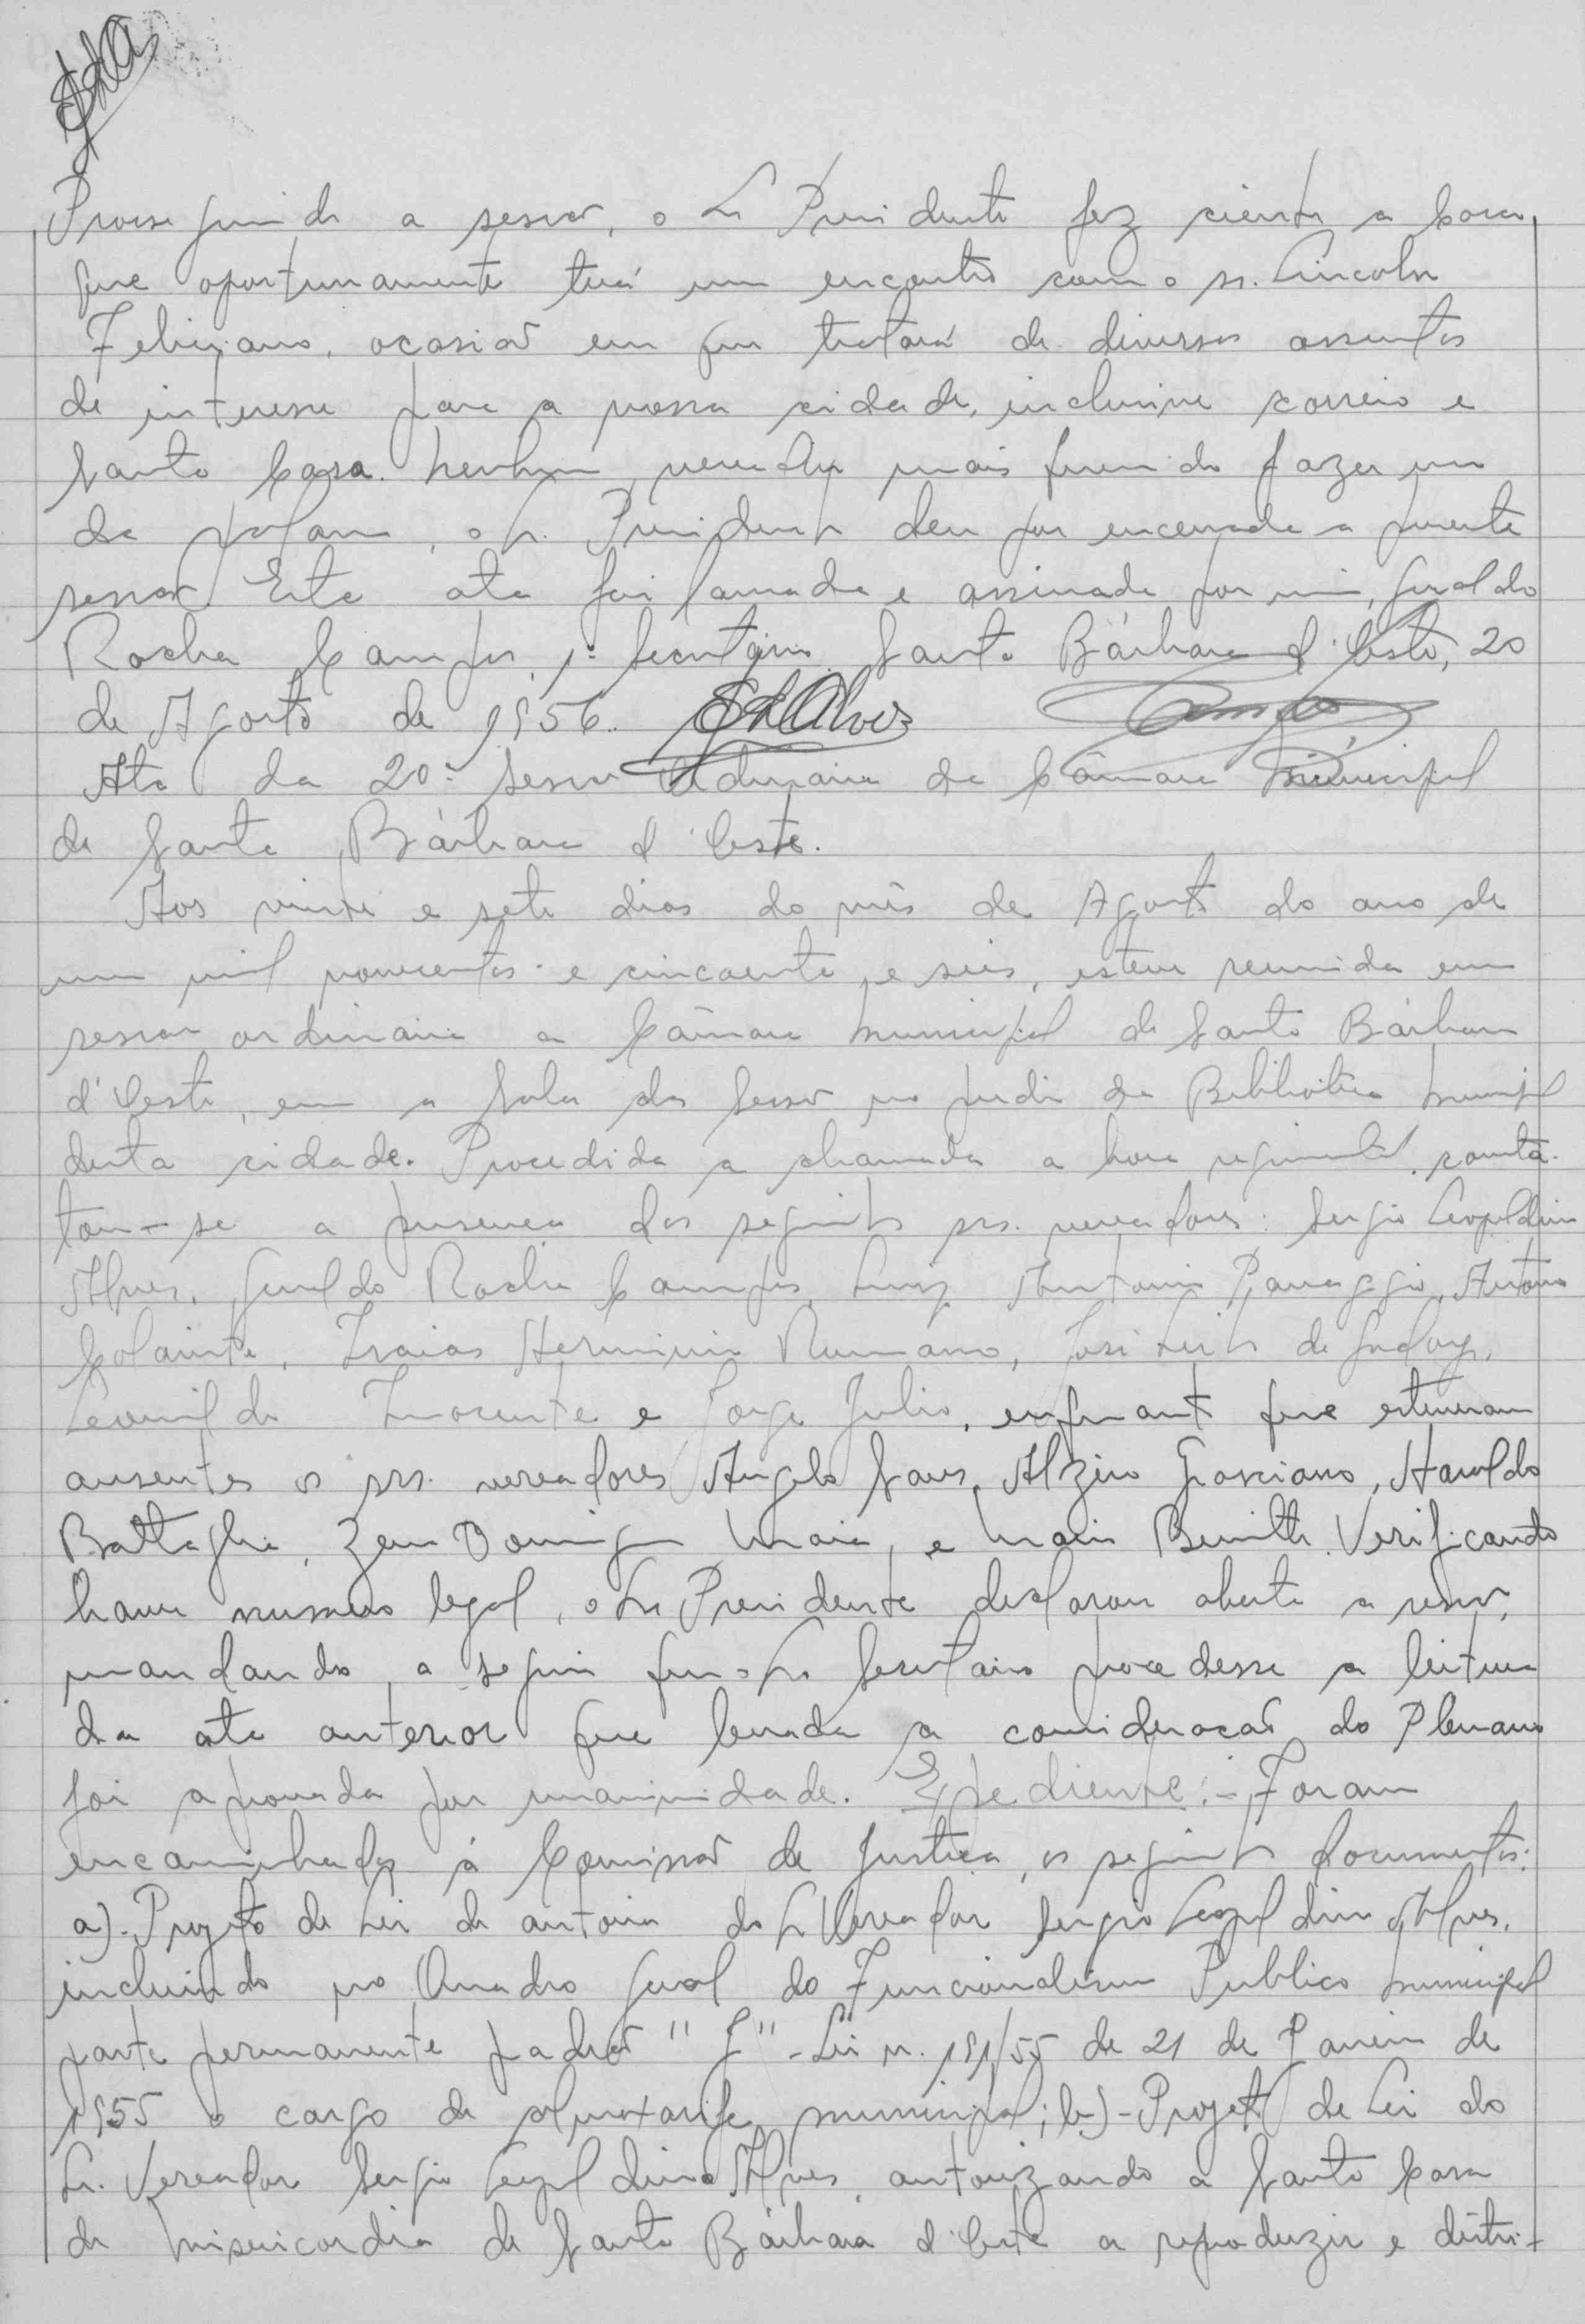 Prosseguindo a sessão, o Sr. Presidente fez ciente a Casa
que oportunamente terá um encontro com o sr. Lincoln
Feliciano, ocasião em que tratará de diversos assuntos
de interesse para a nossa cidade, inclusive correio e
Santa Casa. Nenhum vereador mais querendo fazer uso
da palavra, o Sr. Presidente deu por encerrada a presente
sessão. Esta ata foi lavrada e assinada por mim, Geraldo
Rocha Campos, 1º Secretário. Santa Bárbara d'Oeste, 20
de Agosto de 1956. SLAlves Campos
Ata da 20ª sessão Ordinária da Câmara Municipal
de Santa Bárbara d'Oeste.
Aos vinte e sete dias do mês de Agosto do ano de
um mil novecentos e cincoenta e seis, esteve reunida em
sessão ordinária a Câmara Municipal de Santa Bárbara
d'Oeste, em a Sala das Sessões no prédio da Biblioteca Municipal
desta cidade. Procedida a chamada a hora regimental, consta-
tou-se a presença dos seguintes srs. vereadores: Sergio Leopoldino
Alves, Geraldo Rocha Campos, Luiz Antonio Panaggio, Antonio
Isaias Herminio Romano, José Leite de Godoy,
Leovigildo e Jorge Julio, enquanto que estiveram
ausentes os srs. vereadores Angelo Alziro Graciano, Haroldo
Battaglia, Domingos Maia, e Mario Verificando
haver numero legal, o Sr. Presidente declarou aberta a sessão,
mandando a seguir que o Sr. Secretário procedesse a leitura
da ata anterior que levada a consideração do Plenario
foi aprovada por unanimidade. Expediente:- Foram
encaminhados á Comissão de Justiça, os seguintes documentos:
a)- Projeto de Lei de autoria do Sr. Vereador Sergio Leopoldino Alves,
incluindo no Quadro Geral do Funcionalismo Publico Municipal
parte permanente padrão "J" - Lei n. 191/55 de 21 de Janeiro de
1955 o cargo de almoxarife municipal; b)- Projeto de Lei do
Sr. Vereador Sergio Leopoldino Alves, autorizando a Santa Casa
de Misericordia de Santa Bárbara d'Oeste a reproduzir e distri-